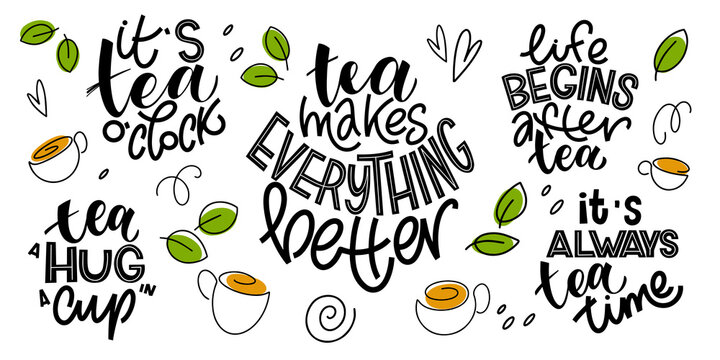 it's
tea
o'clock
tea
makes
EVERYTHING
better
life
BEGINS
after
tea
tea
A HUG
IN
A cup
it's
ALWAYS
tea
time